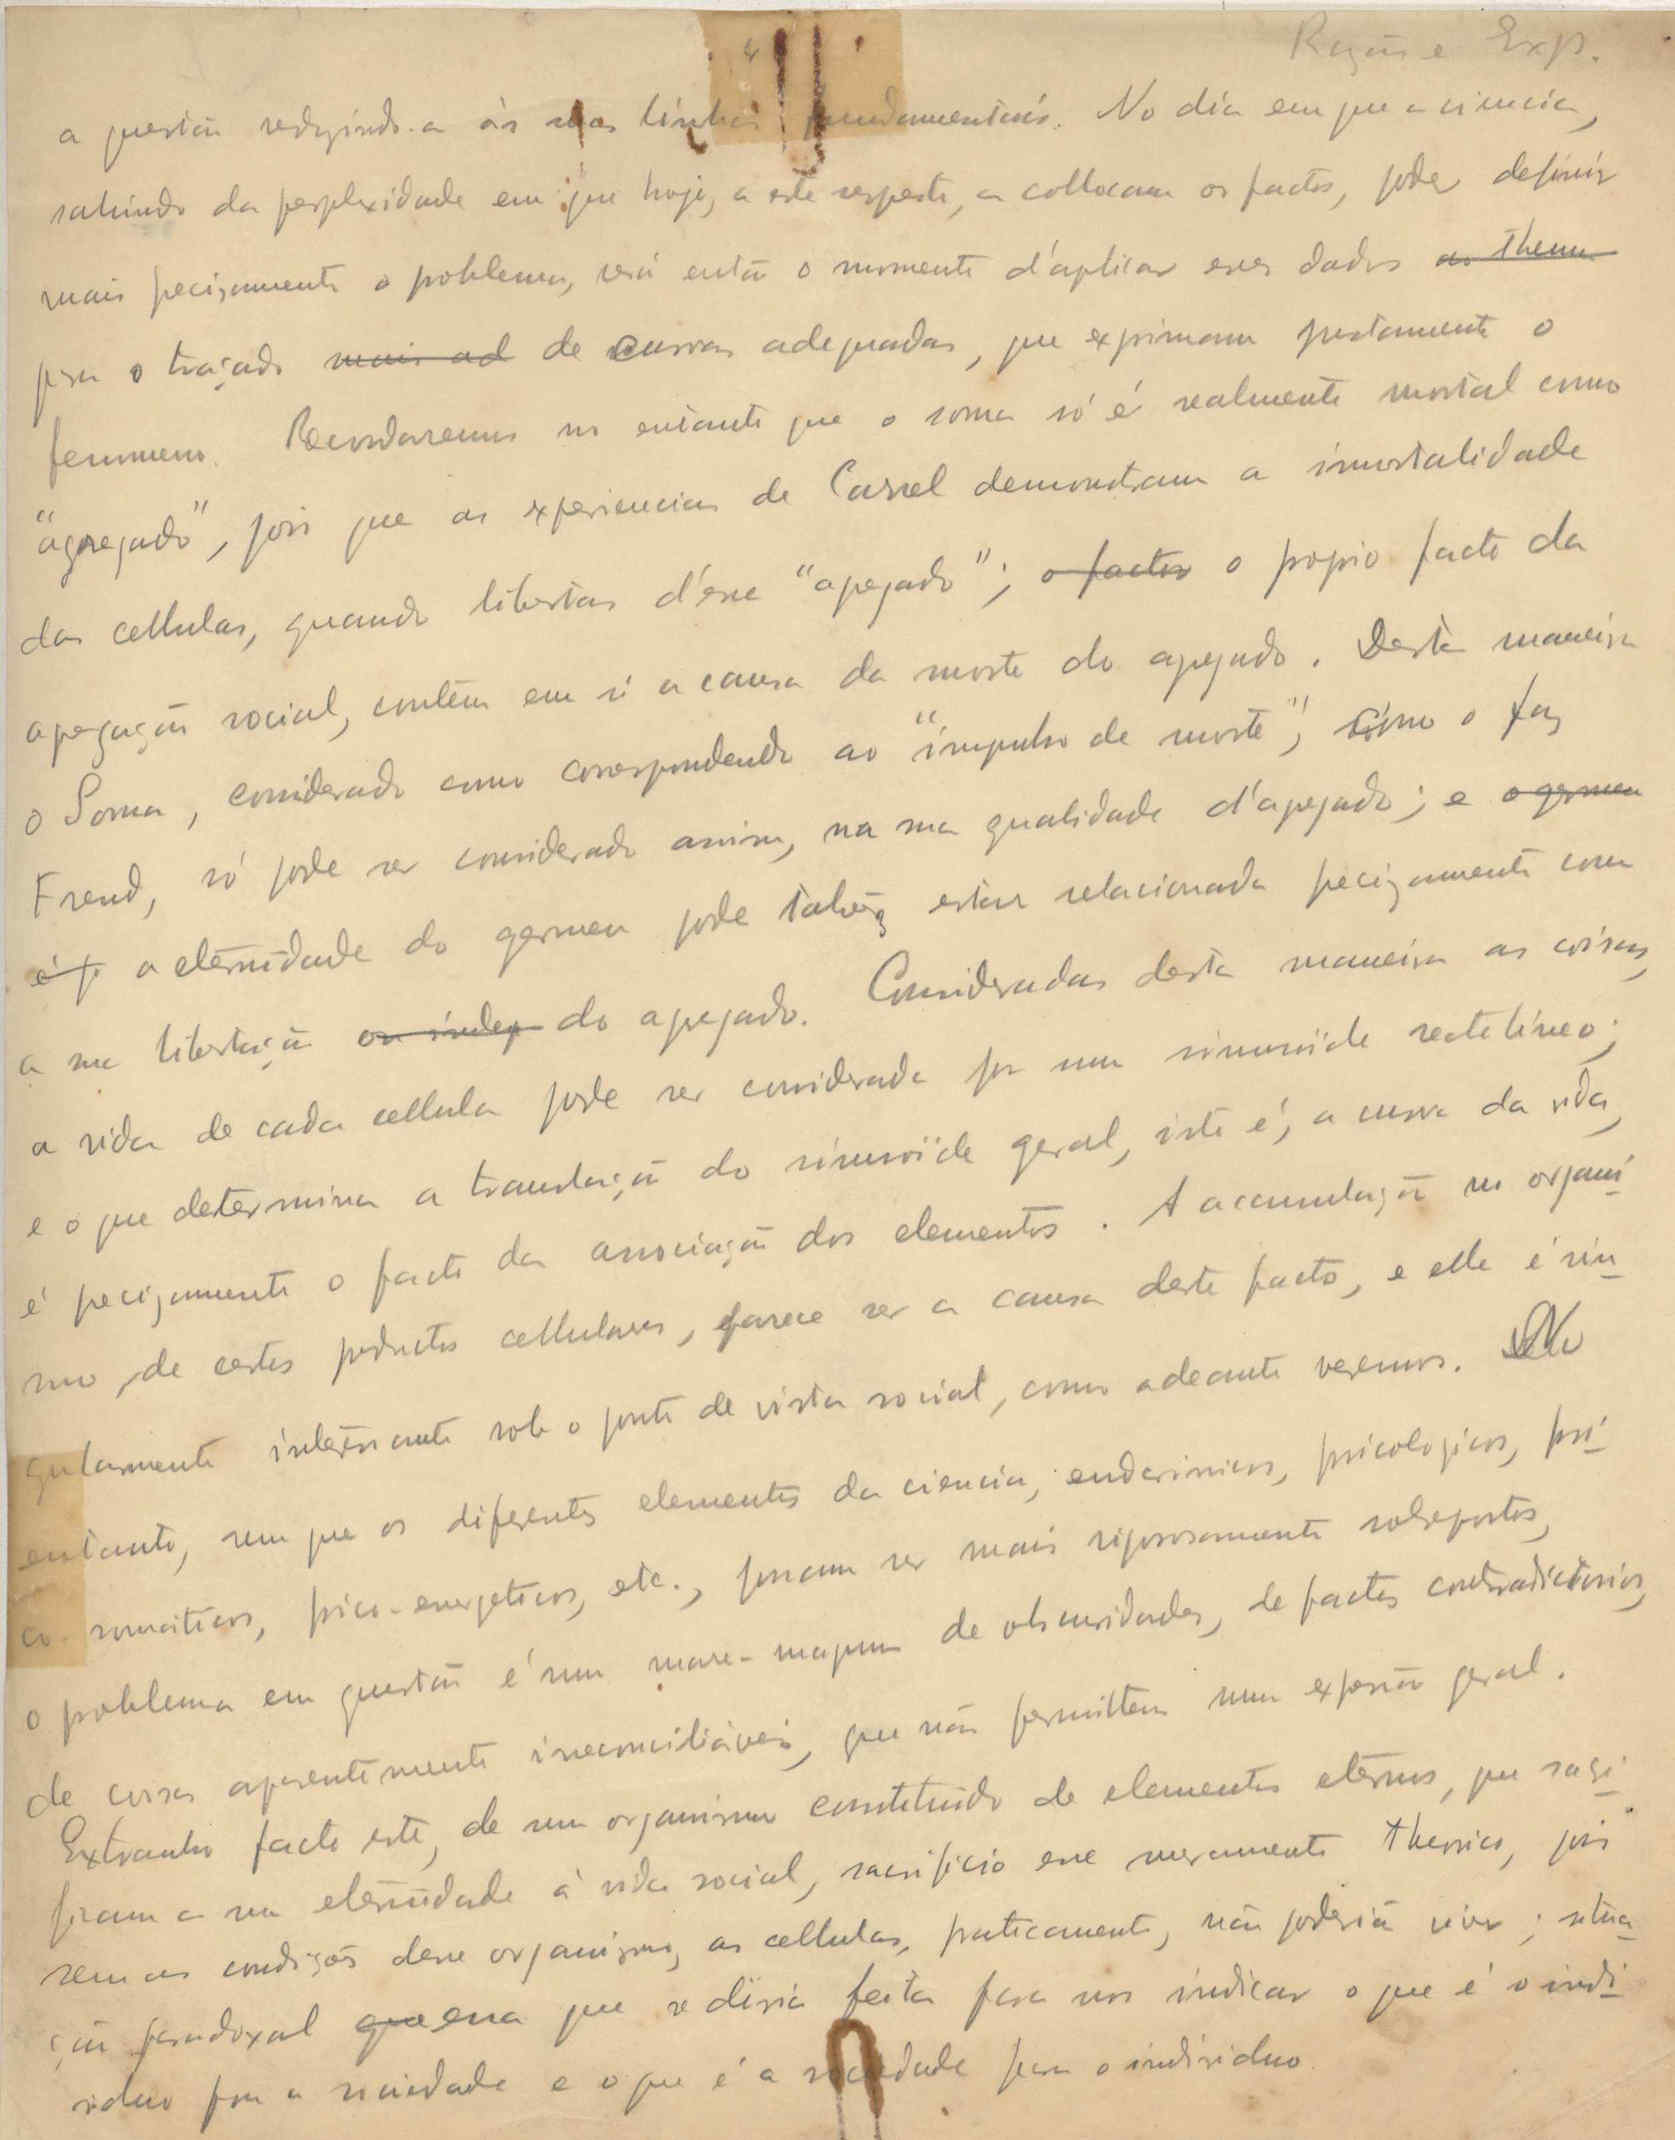 4
Razão e Exp.
a questão reduzindo-a ás suas linhas fundamentais. No dia em que a ciencia,
sahindo da perplexidade em que hoje, a este respeito, a collocam os factos, poder definir
mais precizamente o problema, será então o momento d'aplicar esses dados ao thema
para o traçado mais ad de curvas adequadas, que exprimam justamente o
fenomeno. Recordaremos no entanto que o soma só é realmente mortal como
"agregado", pois que as experiencias de Carrel demonstram a imortalidade
das cellulas, quando libertas d'esse "agregado"; o factor o proprio facto da
agregação social, contém em si a causa da morte do agregado. Desta maneira
o Soma, considerado como correspondendo ao "impulso de morte", como o faz
Freud, só pode ser considerado assim, na sua qualidade d'agregado; e o germen
é p a eternidade do germen pode talvez estar relacionada precizamente com
a sua libertação ou indep do agregado. Consideradas desta maneira as coisas,
a vida de cada cellula pode ser considerada por um sinusoïde rectelíneo;
e o que determina a translação do sinusoïde geral, isto é, a curva da vida,
é precizamente o facto da associação dos elementos. A accumulação no organi-
smo, de certos productos cellulares, parece ser a causa deste facto, e elle é sin-
gularmente interessante sob o ponto de vista social, como adeante veremos. No
entanto, sem que os diferentes elementos da ciencia, endocrinicos, psicologicos, psi-
co-somaticos, psico-energeticos, etc., possam ser mais rigorosamente sobrepostos,
o problema em questão é um mare-magnum de obscuridades, de factos contradictorios,
de coisas aparentemente irreconciliáveis, que não permittem uma expressão geral.
Extranho facto este, de um organismo constituido de elementos eternos, que sacri-
ficam a sua eternidade á vida social, sacrificio esse meramente theorico, pois
sem as condições desse organismo, as cellulas, praticamente, não poderiã viver; situa-
ção paradoxal que essa que se diria feita para nos indicar o que é o indi-
viduo para a sociedade e o que é a sociedade para o individuo.